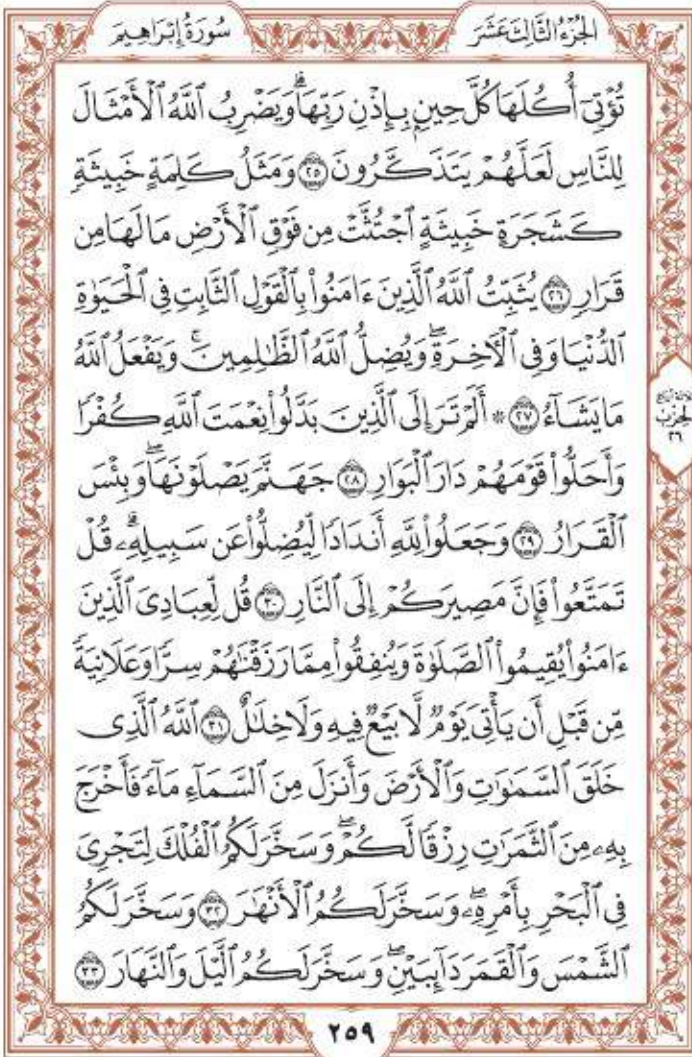 الجزء الثالث عشر
سورة إبراهيم
تُؤْتِىٓ أُكُلَهَا كُلَّ حِينٍۭ بِإِذْنِ رَبِّهَاۗ وَيَضْرِبُ ٱللَّهُ ٱلْأَمْثَالَ
لِلنَّاسِ لَعَلَّهُمْ يَتَذَكَّرُونَ ۝٢٥ وَمَثَلُ كَلِمَةٍ خَبِيثَةٍ
كَشَجَرَةٍ خَبِيثَةٍ ٱجْتُثَّتْ مِن فَوْقِ ٱلْأَرْضِ مَا لَهَا مِن
قَرَارٍ ۝٢٦ يُثَبِّتُ ٱللَّهُ ٱلَّذِينَ ءَامَنُوا۟ بِٱلْقَوْلِ ٱلثَّابِتِ فِى ٱلْحَيَوٰةِ
ٱلدُّنْيَا وَفِى ٱلْءَاخِرَةِۖ وَيُضِلُّ ٱللَّهُ ٱلظَّـٰلِمِينَۚ وَيَفْعَلُ ٱللَّهُ
مَا يَشَآءُ ۝٢٧ ۞ أَلَمْ تَرَ إِلَى ٱلَّذِينَ بَدَّلُوا۟ نِعْمَتَ ٱللَّهِ كُفْرًا
وَأَحَلُّوا۟ قَوْمَهُمْ دَارَ ٱلْبَوَارِ ۝٢٨ جَهَنَّمَ يَصْلَوْنَهَاۖ وَبِئْسَ
ٱلْقَرَارُ ۝٢٩ وَجَعَلُوا۟ لِلَّهِ أَندَادًا لِّيُضِلُّوا۟ عَن سَبِيلِهِۦۗ قُلْ
تَمَتَّعُوا۟ فَإِنَّ مَصِيرَكُمْ إِلَى ٱلنَّارِ ۝٣٠ قُل لِّعِبَادِىَ ٱلَّذِينَ
ءَامَنُوا۟ يُقِيمُوا۟ ٱلصَّلَوٰةَ وَيُنفِقُوا۟ مِمَّا رَزَقْنَـٰهُمْ سِرًّا وَعَلَانِيَةً
مِّن قَبْلِ أَن يَأْتِىَ يَوْمٌ لَّا بَيْعٌ فِيهِ وَلَا خِلَـٰلٌ ۝٣١ ٱللَّهُ ٱلَّذِى
خَلَقَ ٱلسَّمَـٰوَٰتِ وَٱلْأَرْضَ وَأَنزَلَ مِنَ ٱلسَّمَآءِ مَآءً فَأَخْرَجَ
بِهِۦ مِنَ ٱلثَّمَرَٰتِ رِزْقًا لَّكُمْۖ وَسَخَّرَ لَكُمُ ٱلْفُلْكَ لِتَجْرِىَ
فِى ٱلْبَحْرِ بِأَمْرِهِۦۖ وَسَخَّرَ لَكُمُ ٱلْأَنْهَـٰرَ ۝٣٢ وَسَخَّرَ لَكُمُ
ٱلشَّمْسَ وَٱلْقَمَرَ دَآئِبَيْنِۖ وَسَخَّرَ لَكُمُ ٱلَّيْلَ وَٱلنَّهَارَ ۝٣٣
الحزب
٢٦
٢٥٩